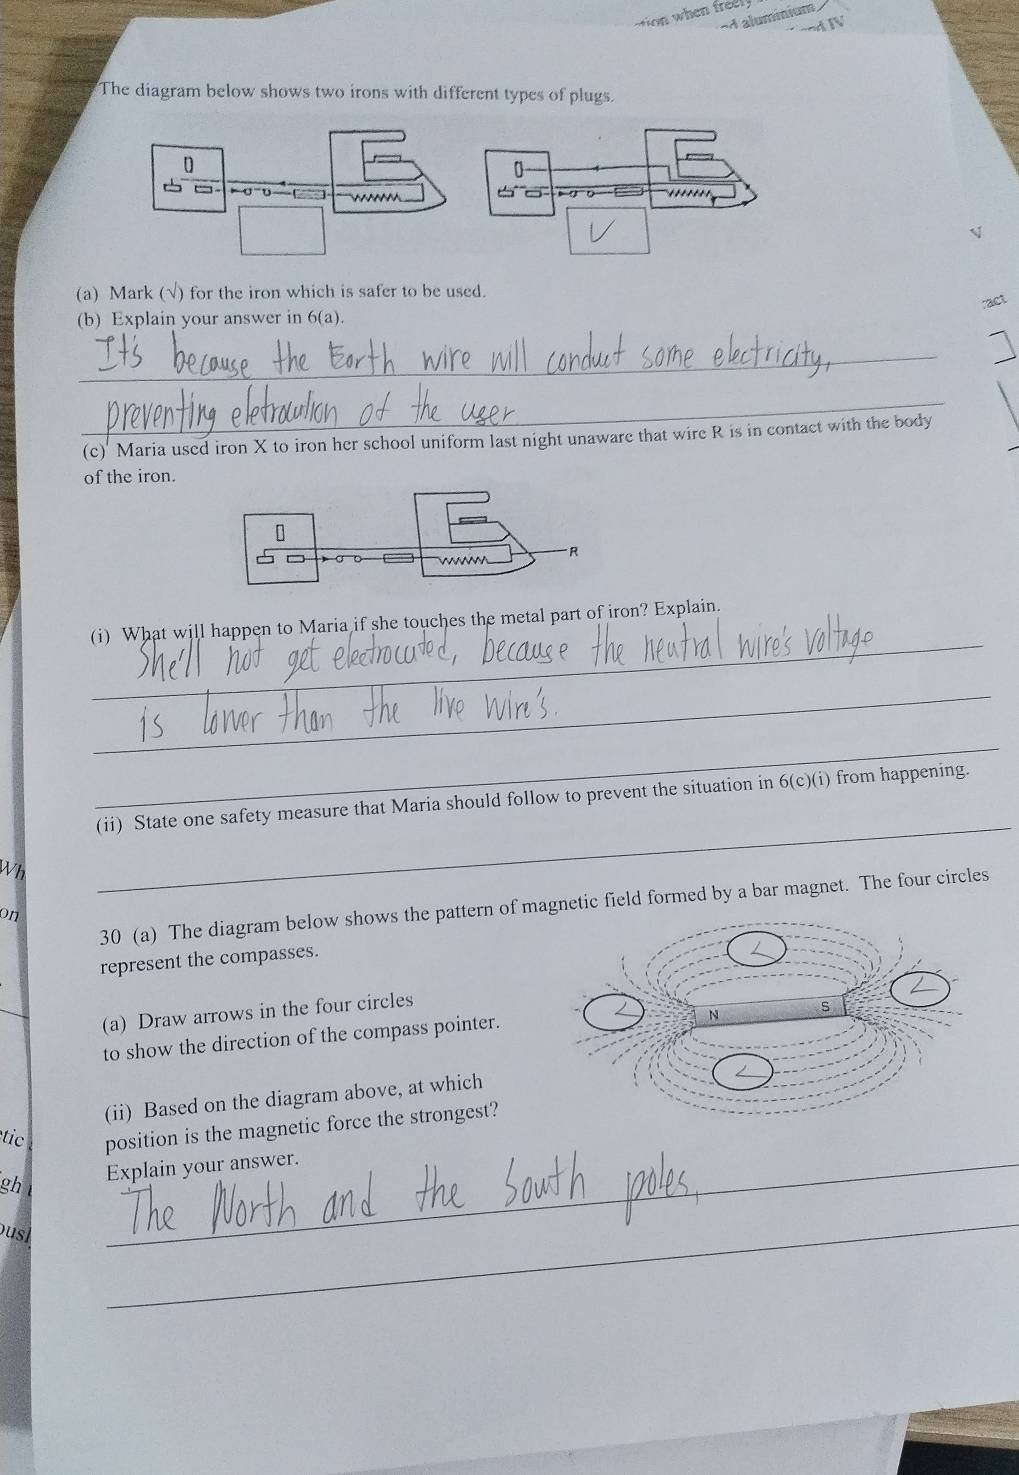 tion when freely
d aluminium
nd IV
The diagram below shows two irons with different types of plugs.
V
(a) Mark (√) for the iron which is safer to be used.
act
(b) Explain your answer in 6(a).
It's because the Earth wire will conduct some electricity,
preventing eletrocution of the user
(c) Maria used iron X to iron her school uniform last night unaware that wire R is in contact with the body
of the iron.
R
(i) What will happen to Maria if she touches the metal part of iron? Explain.
She'll not get electrocuted, because the neutral wire's voltage
is lower than the live wire's.
(ii) State one safety measure that Maria should follow to prevent the situation in 6(c)(i) from happening.
Wh
on
30 (a) The diagram below shows the pattern of magnetic field formed by a bar magnet. The four circles
represent the compasses.
N S
(a) Draw arrows in the four circles
to show the direction of the compass pointer.
(ii) Based on the diagram above, at which
position is the magnetic force the strongest?
Explain your answer.
tic
gh
ous
The North and the South poles,